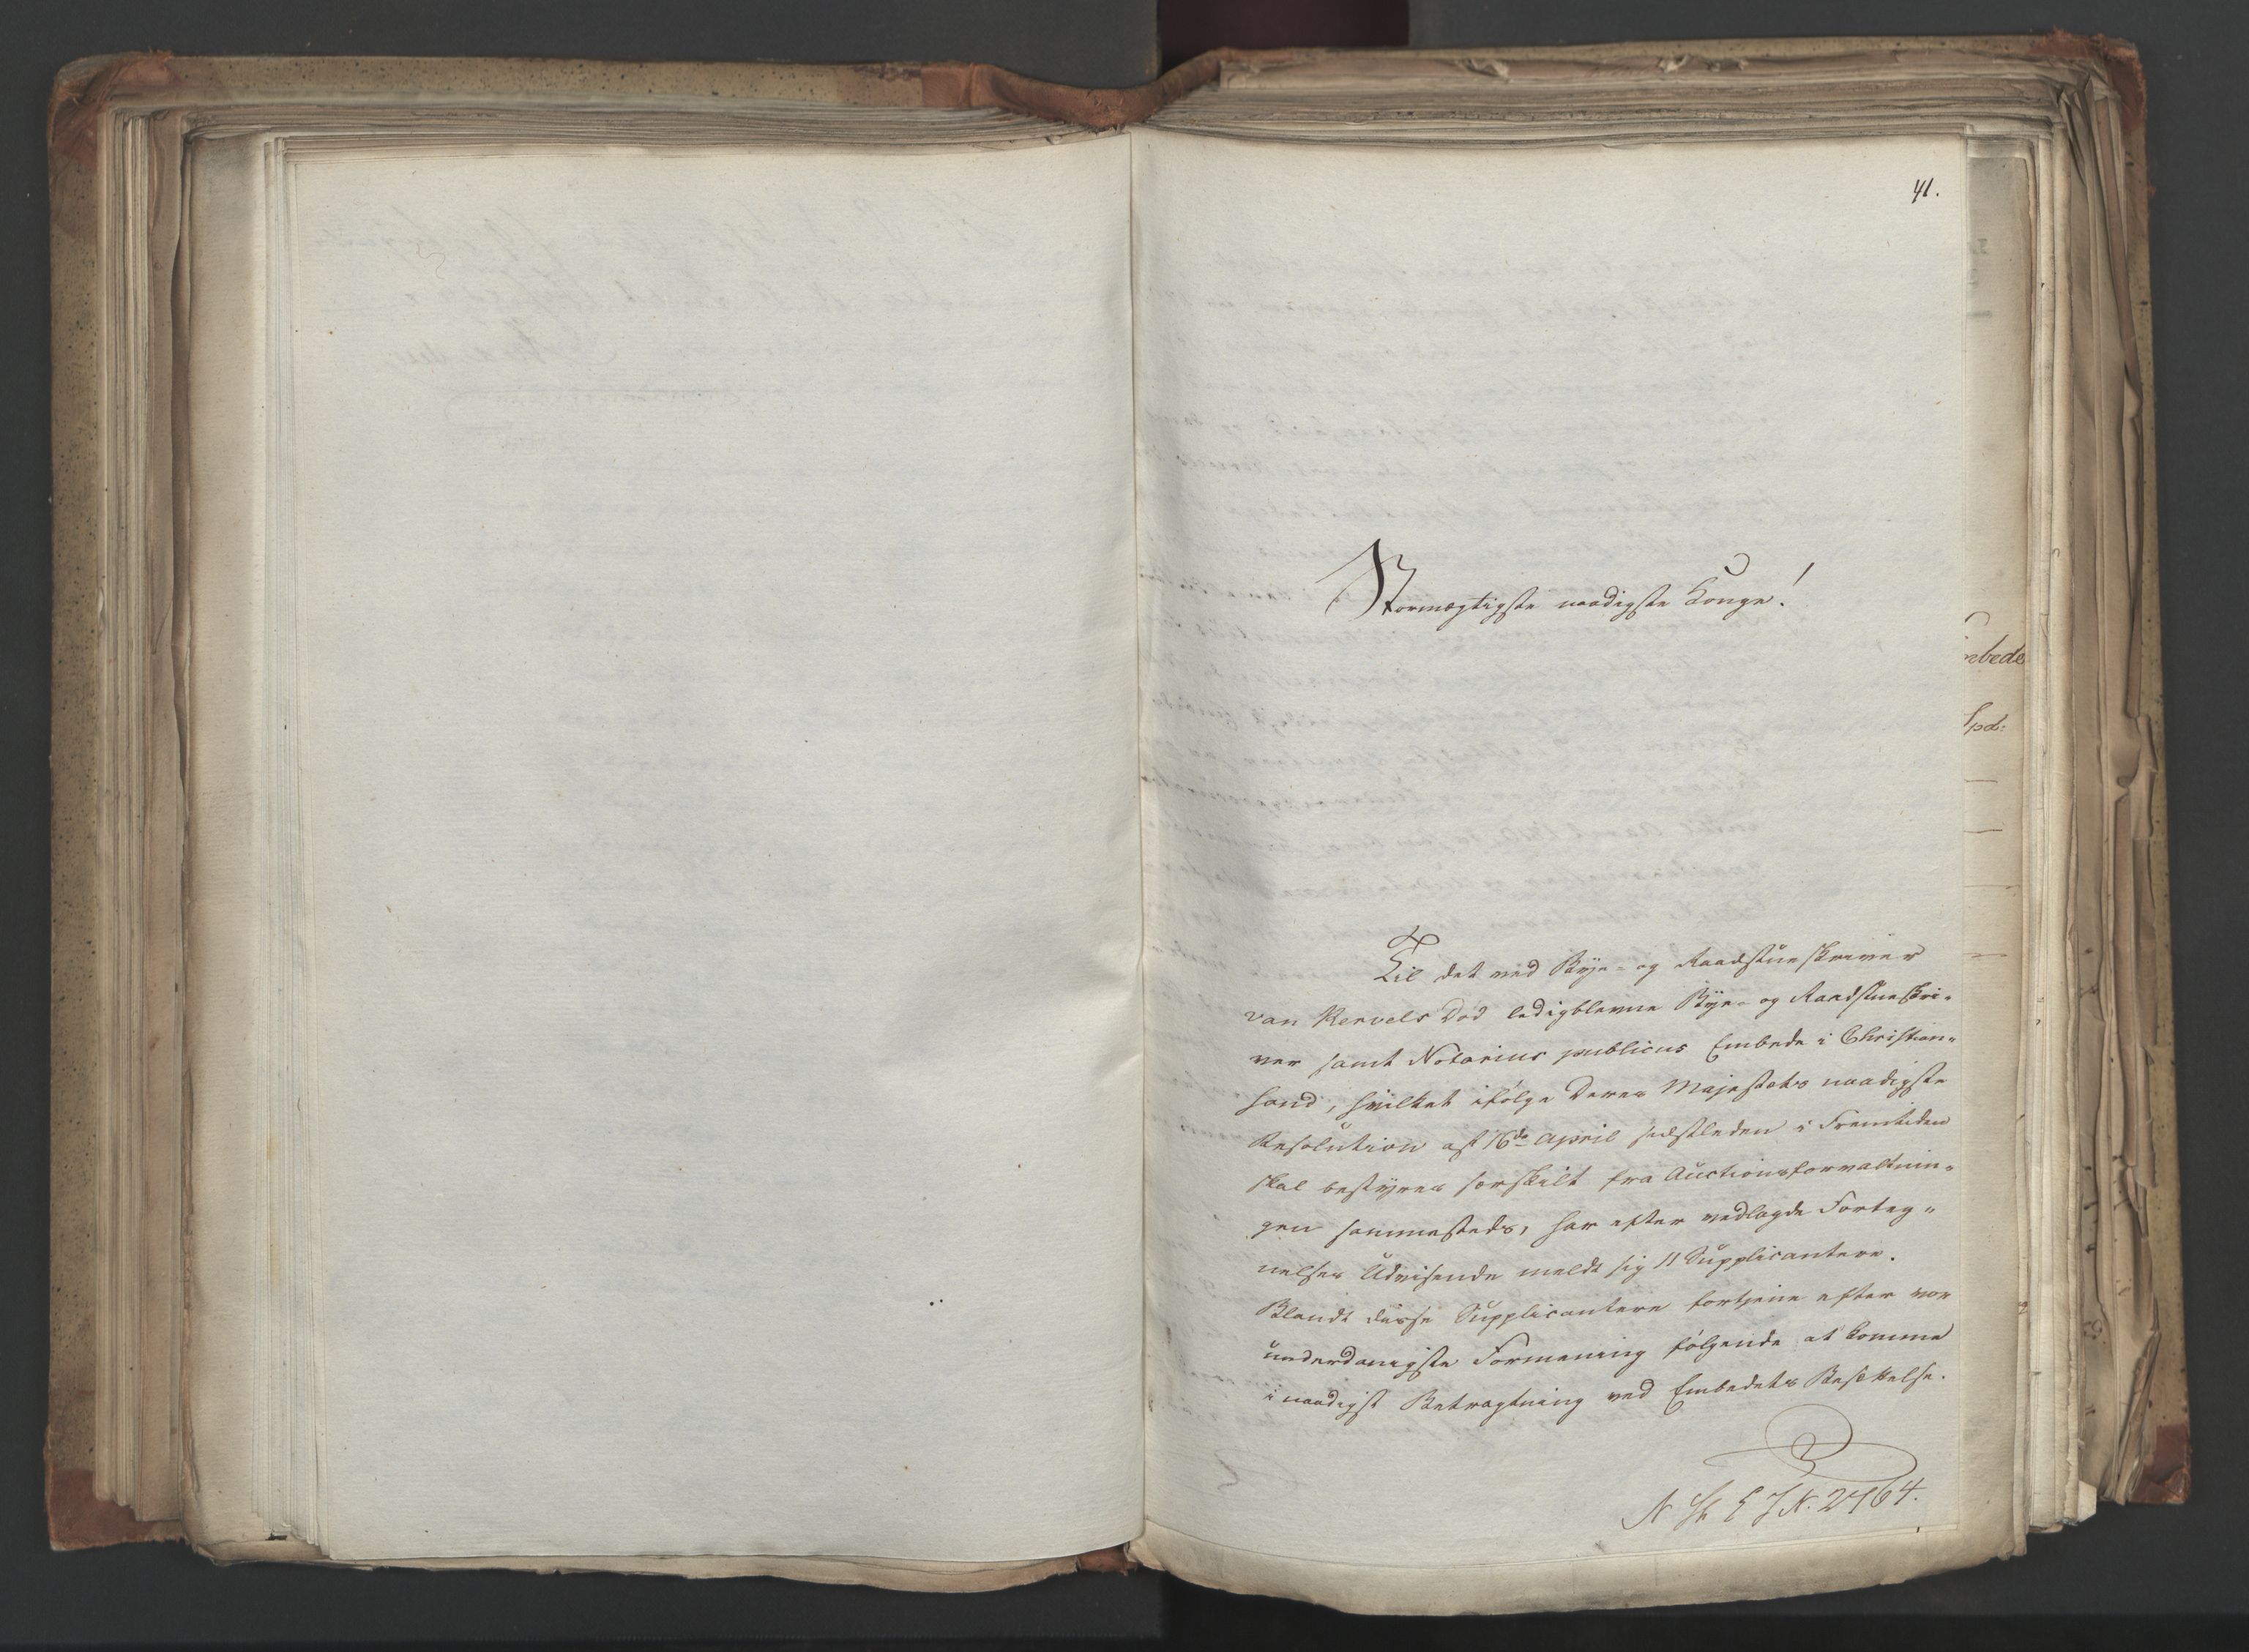 41.
Stormægtigste naadigste Konge!
Til det ved Bye- og Raadstueskriver
van Kervels Død ledigblevne Bye- og Raadstueskri-
ver samt Notarius publicus Embede i Christian-
sand, hvilket ifølge Deres Majestæts naadigste
Resolution af 16de April sidstleden i Fremtiden
skal bestyres særskilt fra Auctionsforvaltnin-
gen sammesteds, har efter vedlagde Forteg-
nelses Udvisende meldt sig 11 Supplicantere.
Blandt disse Supplicantere fortjene efter vor
underdanigste Formening følgende at komme
i naadigst Betragtning ved Embedets Besættelse.
JN. 2764.
mbede
Spd: